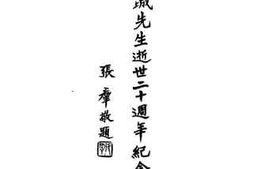 城先生逝世二十週年紀念
張羣敬題